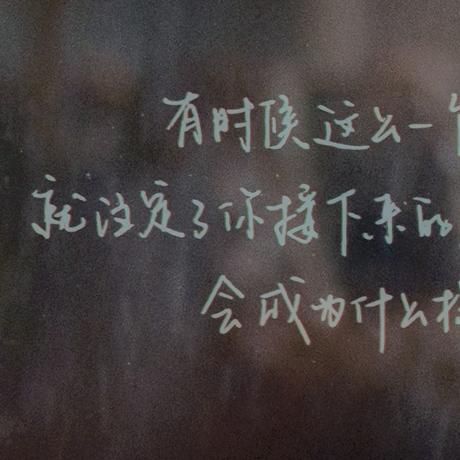 有时候这么一
就注定了你接下来的
会成为什么